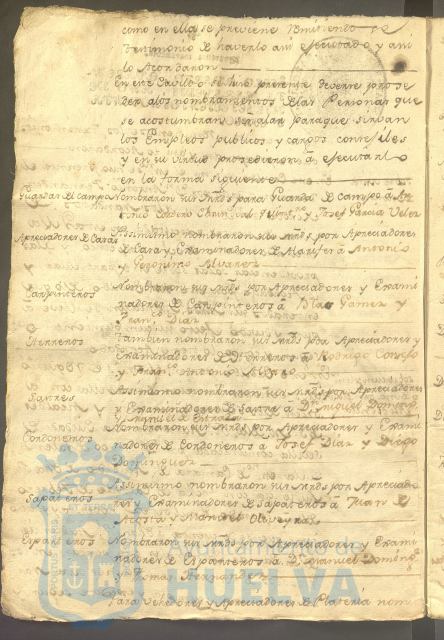 como en ella se previene poniendose
testimonio de haverlo asi ejecutado y asi
lo Acordaron
En este Cavildo se hizo presente deverse prose
der a los nombramientos de las Personas que
se acostumbran señalar para que sirvan
los Empleos publicos y cargos consejiles
y en su virtud prosedieron a ejecutarlo
en la forma siguiente
Guardas de Campo Nombraron sus Mrds para Guarda de Campo á An
tonio Cordero Josef Garcia Velez
Apreciadores de Casas Assimismo nombraron sus Mrds por Apreciadores
de Casas y Examinadores de Alarifes a Antonio
y Geronimo Alvarez
Carpinteros Nombraron sus Mrds por Apreciadores y Exami
nadores de Carpinteros a Blas Gamez y
Franco Diaz
Herreros Tambien nombraron sus Mrds por Apreciadores y
Examinadores de Herreros a Rodrigo
y Antonio
Sastres Assimismo nombraron sus Mrds por Apreciadores
y Examinadores de Sastre a
Cordoneros Nombraron sus Mrds por Apreciadores y Exami
nadores de Cordoneros a Josef Diaz y Diego
Dominguez
Sapateros Assimismo nombraron sus Mrds por Apreciado
res y Examinadores de Sapateros á Juan de
Acosta y Manuel Oliveyra
Esparteros Nombraron sus Mrds por Apreciadores y Exami
nadores de Esparteros a Dn Manuel Doming
y Tomas Hernandez
Para Vehedores y Apreciadores de Plateria nom
Ayuntamiento de
HUELVA